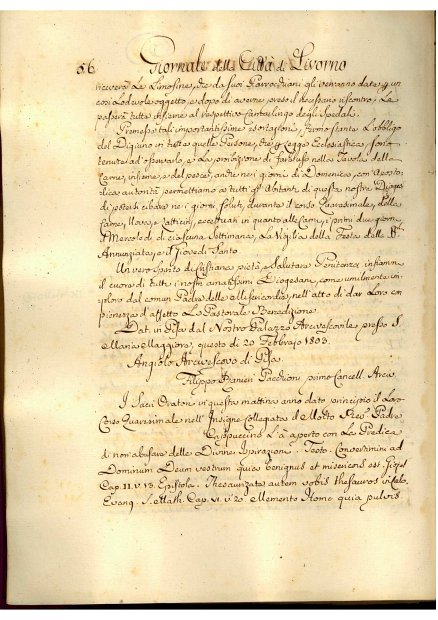 56 Giornale della Città di Livorno
riceverà le Limosine, che da suoi Parrocchiani gli verranno date per un
così Lodevole oggetto, e dopo di averne preso il necessario riscontro, Le
passerà tutte insieme al respettivo Camarlingo degli Spedali.
Premesse tali importantissime esortazioni, ferma stante L'obbligo
del Digiuno in tutte quelle Persone, che per Legge Ecclesiastica sono
tenute ad osservarlo, e La proibizione di far uso nella Tavola della
Carne, insieme, e del pesce, anche nei giorni di Domenica, con Aposto-
lica autorità permettiamo a tutti gli Abitanti di questa nostra Diogesi
di potersi cibare nei giorni soliti, durante il corso Quaresimale, della
Carne, Uova, e Latticini, eccettuati in quanto alle Carni, i primi due giorni,
i Mercoledì di ciascuna Settimana, La Vigilia della Festa della SS.
Annunziata, e il Giovedì Santo.
Un vero spirito di Cristiana pietà, e Salutare Penitenza infiammi
il cuore di tutti i nostri amatissimi Diogesani, come umilmente im-
ploro dal comun Padre delle Misericordie, nell'atto di dar Loro con
pienezza d'affetto La Pastorale Benedizione.
Dat. in Pisa dal Nostro Palazzo Arcivescovile presso S.
Maria Maggiore, questo dì 20 Febbraio 1803.
Angiolo Arcivescovo di Pisa.
Filippo Ranieri primo Cancell. Arciv.
I Sacri Oratori in questa mattina anno dato principio il Loro
Corso Quaresimale nell'Insigne Collegiata il Molto Rev. Padre
Cappuccino L'à aperto con La Predica
di non abusare delle Divine Ispirazioni. Testo. Convertimini ad
Dominum Deum vestrum quia benignus et misericors est. Gioel
Cap. II. v. 13. Epistola. Thesaurizate autem vobis thesauros in Celo.
Evang. S. Matth. Cap. VI. v. 20. Memento Homo quia pulvis.